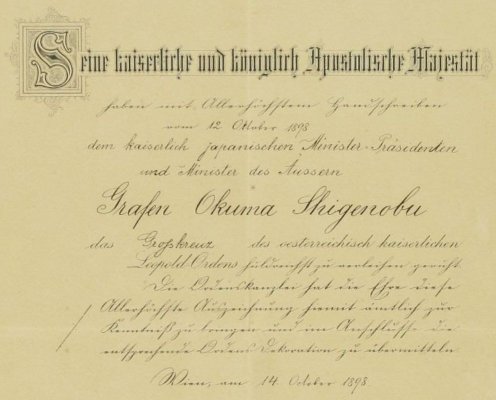 Seine kaiserliche und königlich Apostolische Majestät
haben mit Allerhöchstem Handschreiben
vom 12. Oktober 1898
dem kaiserlich japanischen Minister-Präsidenten
und Minister des Äussern
Grafen Okuma Shigenobu
das Großkreuz des oesterreichisch kaiserlichen
Leopold-Ordens huldreichst zu verleihen geruht.
Die Ordenskanzlei hat die Ehre diese
Allerhöchste Auszeichnung hiemit ämtlich zur
Kenntniß zu bringen und im Anschlusse die
entsprechende Ordens Dekoration zu übermitteln.
Wien, am 14. October 1898.